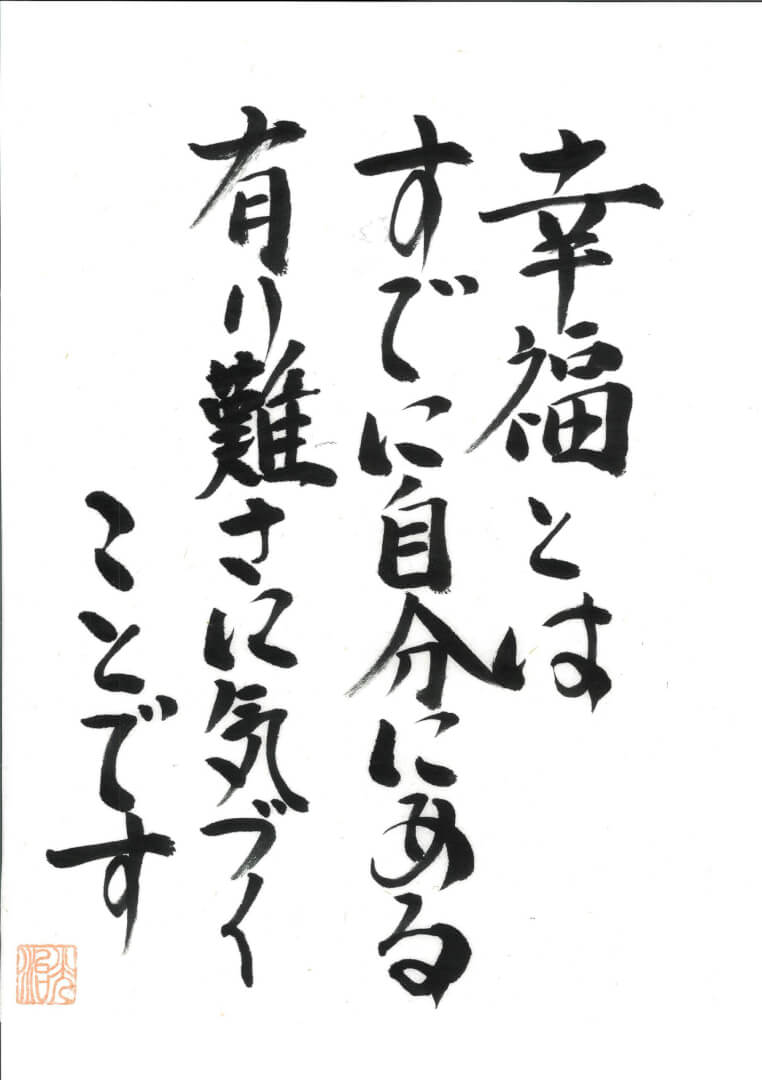 幸福とは
すでに自分にある
有り難さに気づく
ことです